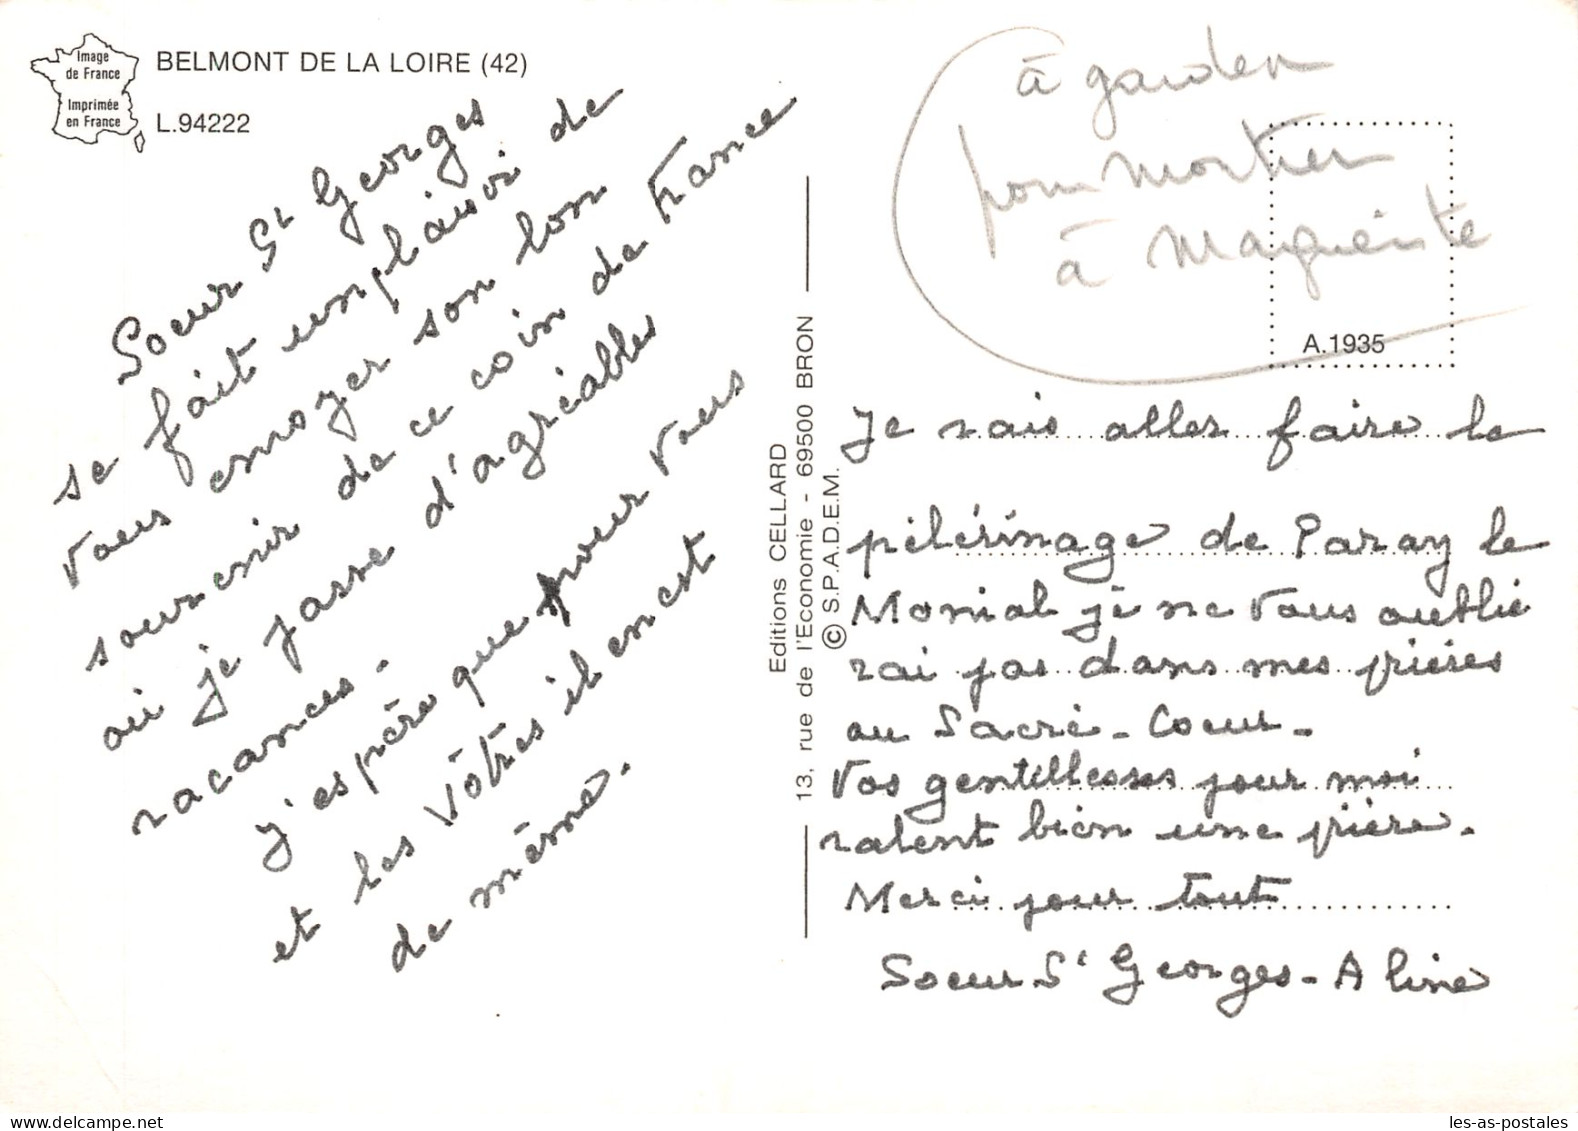 Image
de France
Imprimée
en France
BELMONT DE LA LOIRE (42)
L.94222
Soeur St Georges
se fait un plaisir de
vous envoyer son bon
souvenir de ce coin de France
où je passe d'agréables
vacances.
j'espère que pour vous
et les vôtres il en est
de même.
Editions CELLARD
13, rue de l'Economie - 69500 BRON
© S.P.A.D.E.M.
à garder
pour montrer
à Marguerite
A.1935
Je vais aller faire le
pélérinage de Paray le
Monial je ne vous oublie
rai pas dans mes prières
au Sacré-Coeur.
Vos gentillesses pour moi
valent bien une prière.
Merci pour tout
Soeur St Georges-Aline
les-as-postales